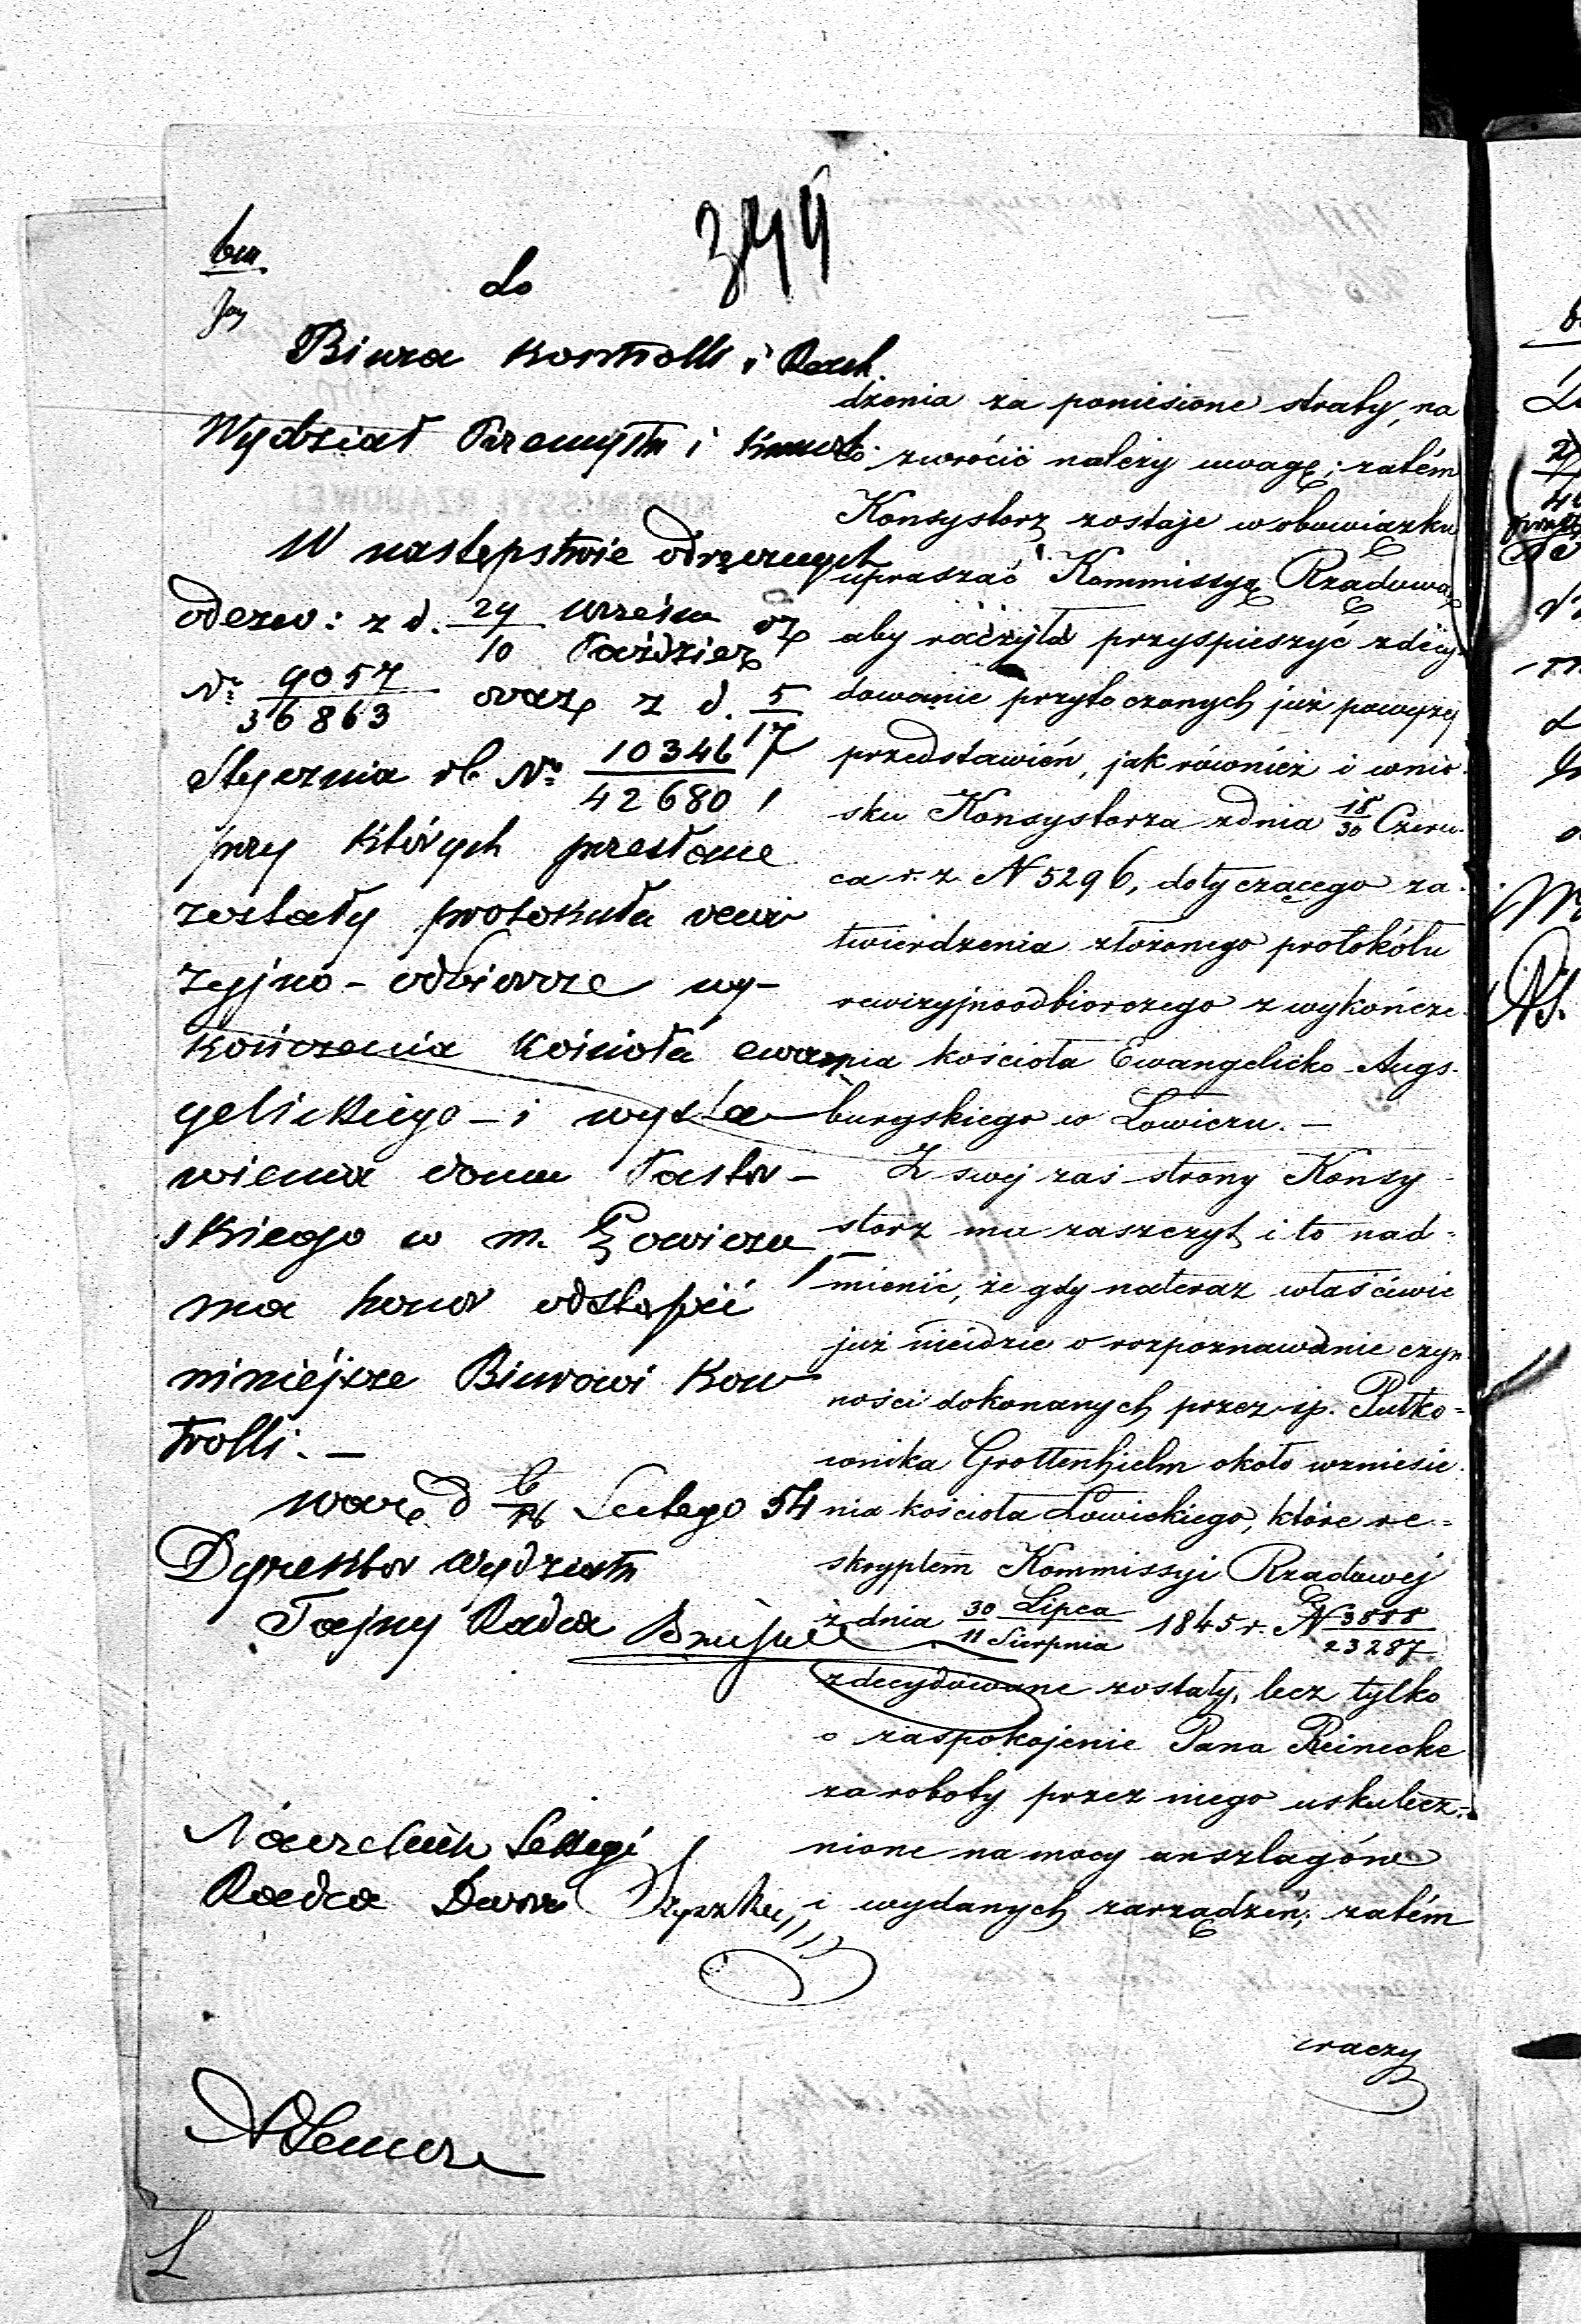 do
Biura Kontrolli i Rach.
Wydział Przemysłu i
W następstwie odręcznych
odezw: z d. 29 Wrześn
10 Paździer
No 9057
36863
oraz z d. 5
17
Stycznia rb. No 10346
42680
przy których przesłane
zostały protokuła rewi
zyjno-odbiorcze wy-
kończenia Kościoła ewan
gelickiego - i wysta
wienia domu Pastor-
skiego w m. Łowiczu
ma honor odstąpić
niniejsze Biurowi Kon
trolli. -
Lutego 54
Dyrektor Wydziału
Tajny Radca
Naczelnik Sekcyi
Radca Dworu
dzenia za poniesione straty, na
to zwrócić należy uwagę; zatém
Konsystorz zostaje w obowiązku
upraszać Kommissyą Rządową
aby raczyła przyspieszyć zdecy-
dowanie przytoczonych już powyżej
przedstawień, jak również i wnio-
sku Konsystorza zdnia 18/30 Czerw-
ca r. z. N 5296, dotyczącego za-
twierdzenia złożonego protokółu
rewizyjnoodbiorczego z wykończe-
nia kościoła Ewangelicko-Augs-
burgskiego w Łowiczu. -
Z swej zaś strony Konsy-
storz ma zaszczyt i to nad-
mienić, że gdy nateraz właściwie
już nieidzie o rozpoznawanie czyn-
ności dokonanych przez śp. Pułko-
wnika Grottenhielm około wzniesie-
nia kościoła Łowickiego, które re-
skryptem Kommissyi Rządowej
z dnia 30 Lipca
11 Sierpnia 1845 r. N 3888
23287
zdecydowane zostały, lecz tylko
o zaspokojenie Pana Reinecke
za roboty przez niego uskutecz-
nione na mocy anszlagów
i wydanych zarządzeń; zatém
raczy